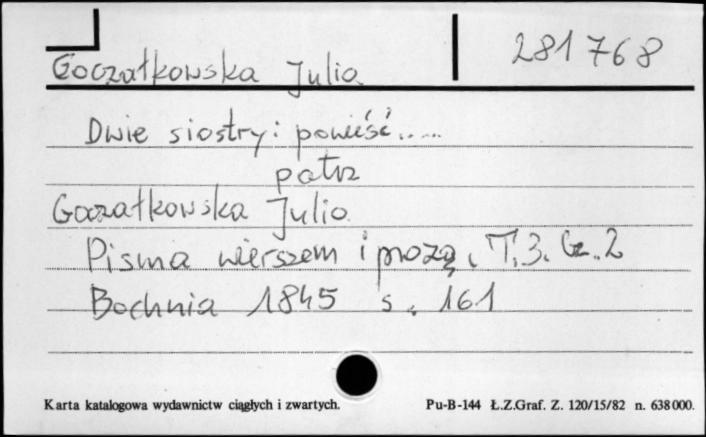 Goczałkowska Julia 281768
Dwie siostry: powieść.....
patrz
Goczałkowska Julia
Pisma wierszem i prozą, T.3. Cz.2
Bochnia 1845 s. 161
Karta katalogowa wydawnictw ciągłych i zwartych. Pu-B-144 Ł.Z.Graf. Z. 120/15/82 n. 638000.